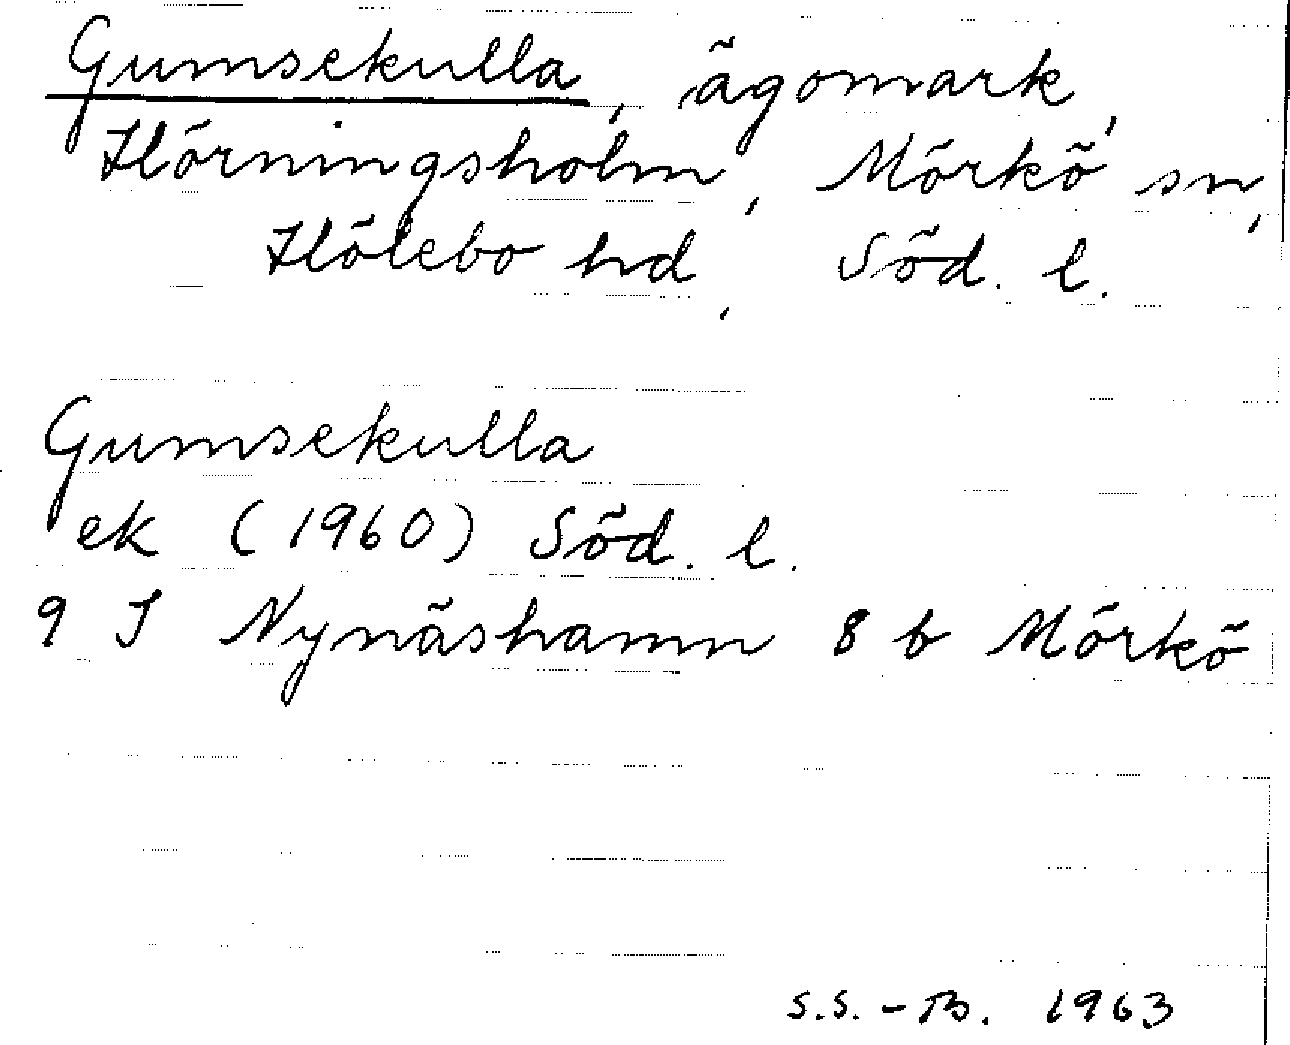 Gumsekulla, ägomark,
Hörningsholm, Mörkö sn,
Hölebo hd, Söd. l.
Gumsekulla
ek (1960) Söd. l.
9 I Nynäshamn 8 b Mörkö
S.S.-B. 1963